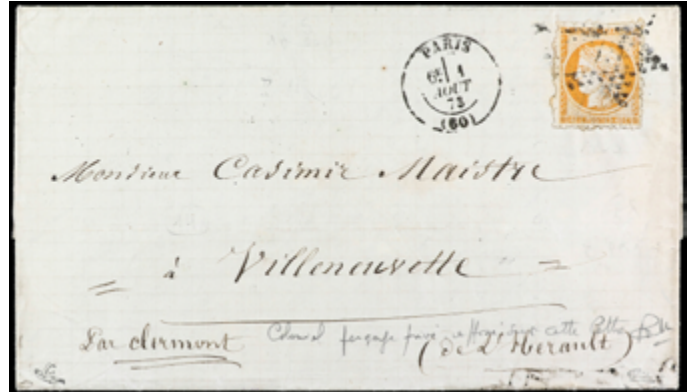 PARIS
6E 1
AOUT
73
(60)
Monsieur Casimir Maistre
à Villeneuvette
Par clermont
cette
(de L'Herault)